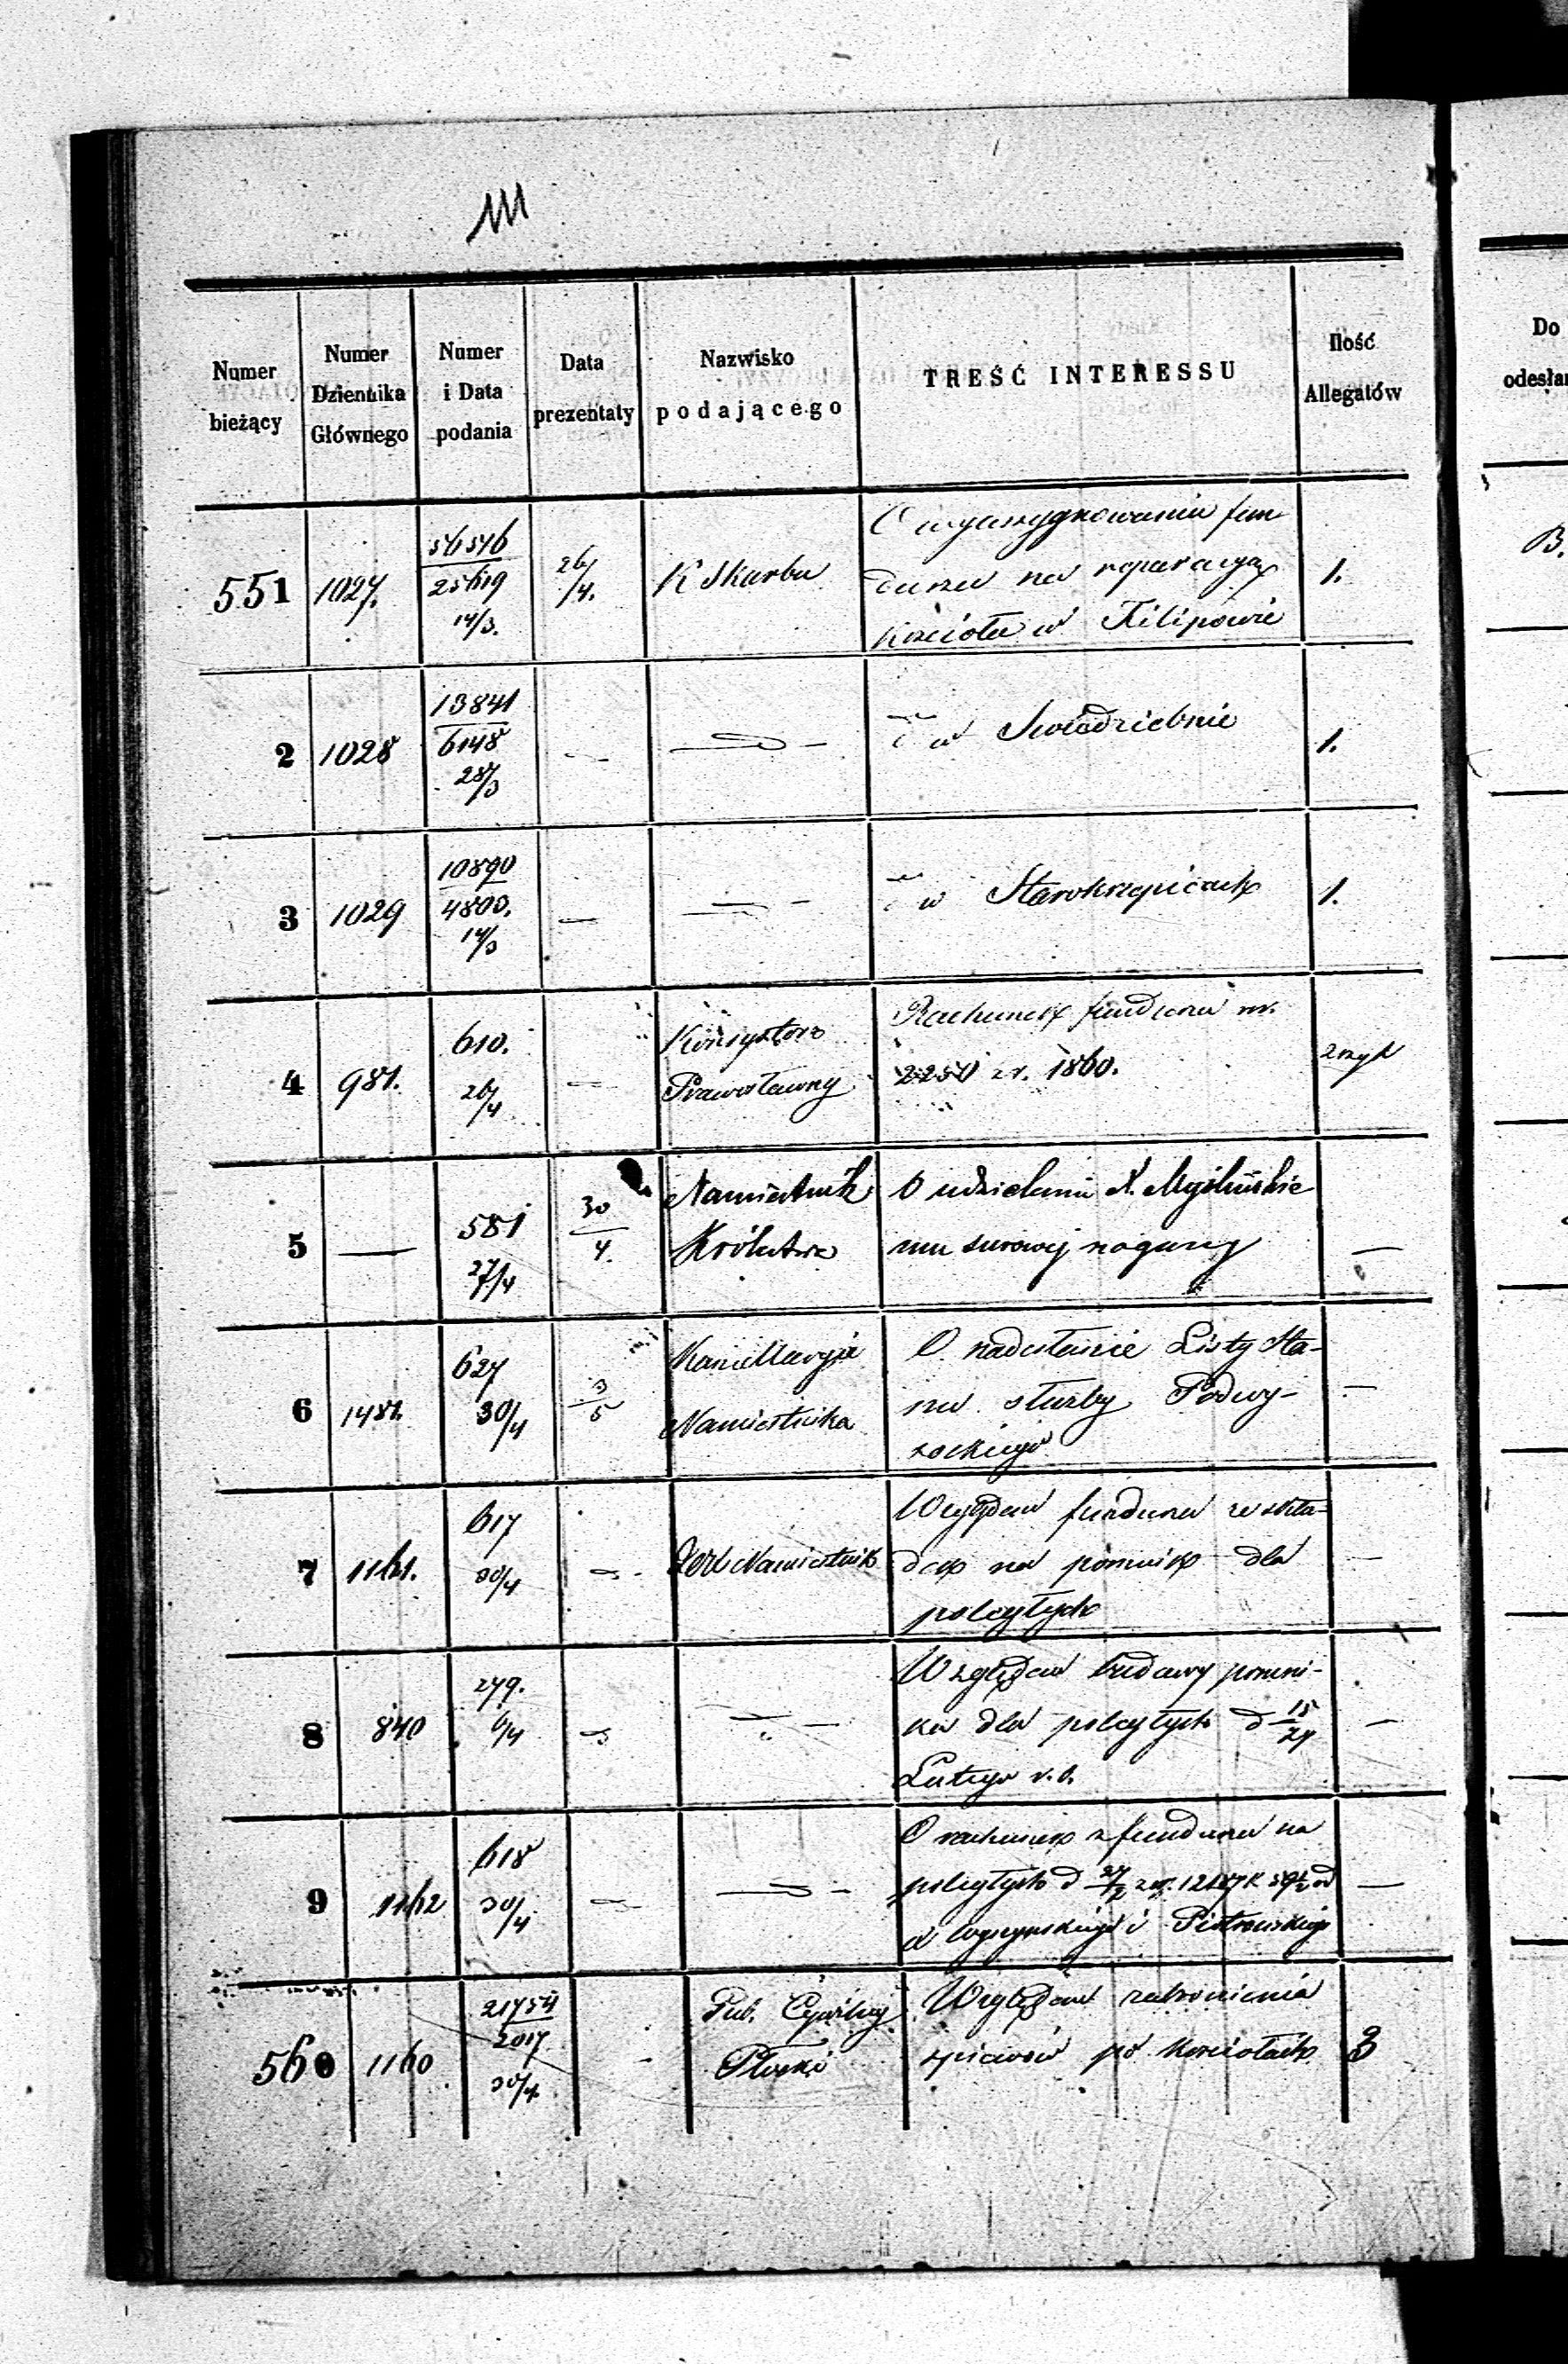 Numer bieżący
Numer Dziennika Głównego
Numer i Data podania
Data prezentaty
Nazwisko podającego
TREŚĆ INTERESSU
Ilość Allegatów
Do
odesłan
551 1027. 56546 / 25619 14/3. 26/4. K Skarbu
O wyassygnowanie fun
duszu na reparacyą
Kościoła w Filipowie
1.
B.
2 1028 13841 / 6148 28/3
w Swiedziebnie
1.
3 1029 10890 / 4800. 14/3 —
w Starokrzepicach
1.
4 981. 610. 26/4 —
Konsystorz
Prawosławny
Rachunek funduszu
2250 z r. 1860.
5 — 581 27/4 30/4.
Namiestnik
Królestwa
O udzielenie X. Myślińskie
mu surowej nagany
—
6 1481. 627 30/4 3/5
Kancellaryja
Namiestnika
O nadesłanie Listy Sta-
nu służby Podwy-
sockiego
—
7 1161. 617 30/4
Namiestnik
Względem funduszu ze skła-
dek na pomnik dla
poległych
—
8 840 279. 6/4
Względem budowy pomni-
ka dla poległych d 15/27
Lutego r. b.
—
9 1162 618 30/4
O rachunek z funduszu na
poległych d 27/2
i Piotrowskiego
—
560 1160 21754 / 2017 30/4 -
Gub. Cywilny
Płocki
Względem zabronienia
spiewów po kościołach
3